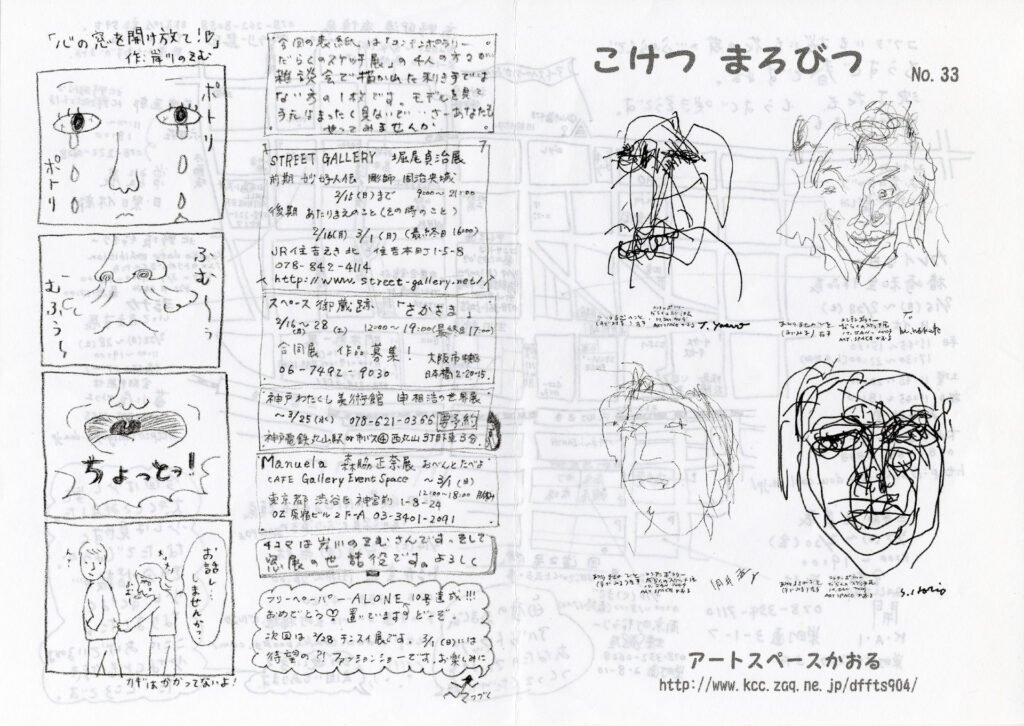 「心の窓を開け放て!♡」
作:岸川のぞむ
ポトリ
ポトリ
ふむ〜う
ーむふぅー
ちょっとっ!
お話し…
しませんかっ?
カギはかかってないよ!
今回の表紙は「コンテンポラリー
だらくのスケッチ展」の4人の方々が
雑談会で描かれた利き手では
ない方の1枚です。モデルを見て
さーあなたも
やってみませんか
STREET GALLERY 堀尾貞治展
前期 妙好人伝 彫師
2/15(日)まで 9:00〜21:00
後期 あたりまえのこと(その時のこと)
2/16(月) 3/1(日) (最終日16:00)
JR住吉えき北 住吉本町1-5-8
078-842-4114
http://www.street-gallery.net/
スペース御蔵跡 「さかさま」
2/16〜28(土) 12:00〜19:00(最終日17:00)
(月)
合同展 作品募集!
大阪市中央区
06-7492-9030 日本橋2-20-15
神戸わたくし美術館 申相浩の世界展
〜3/25(水) 078-621-0366 要予約
神電鉄丸山駅or市バス④西丸山3丁目下車3分
Manuela 森脇正奈展 おべんとたべよ
CAFE Gallery Event Space 〜3/1(日)
12:00〜18:00
東京都渋谷区神宮前1-8-24
OZ原宿ビル2F-A 03-3401-2091
4コマは岸川のぞむさんです。そして
窓展の世話役です。よろしく
フリーペーパーALONE 10号達成!!!
おめでとう♡ 置いていますヨどーぞ。
次回は2/28チェンスイ展です。3/1(日)には
待望の?!ファッションショーです。お楽しみに
つづく
こけつ まろびつ
No. 33
アートスペースかおる
http://www.kcc.zaq.ne.jp/dffts904/